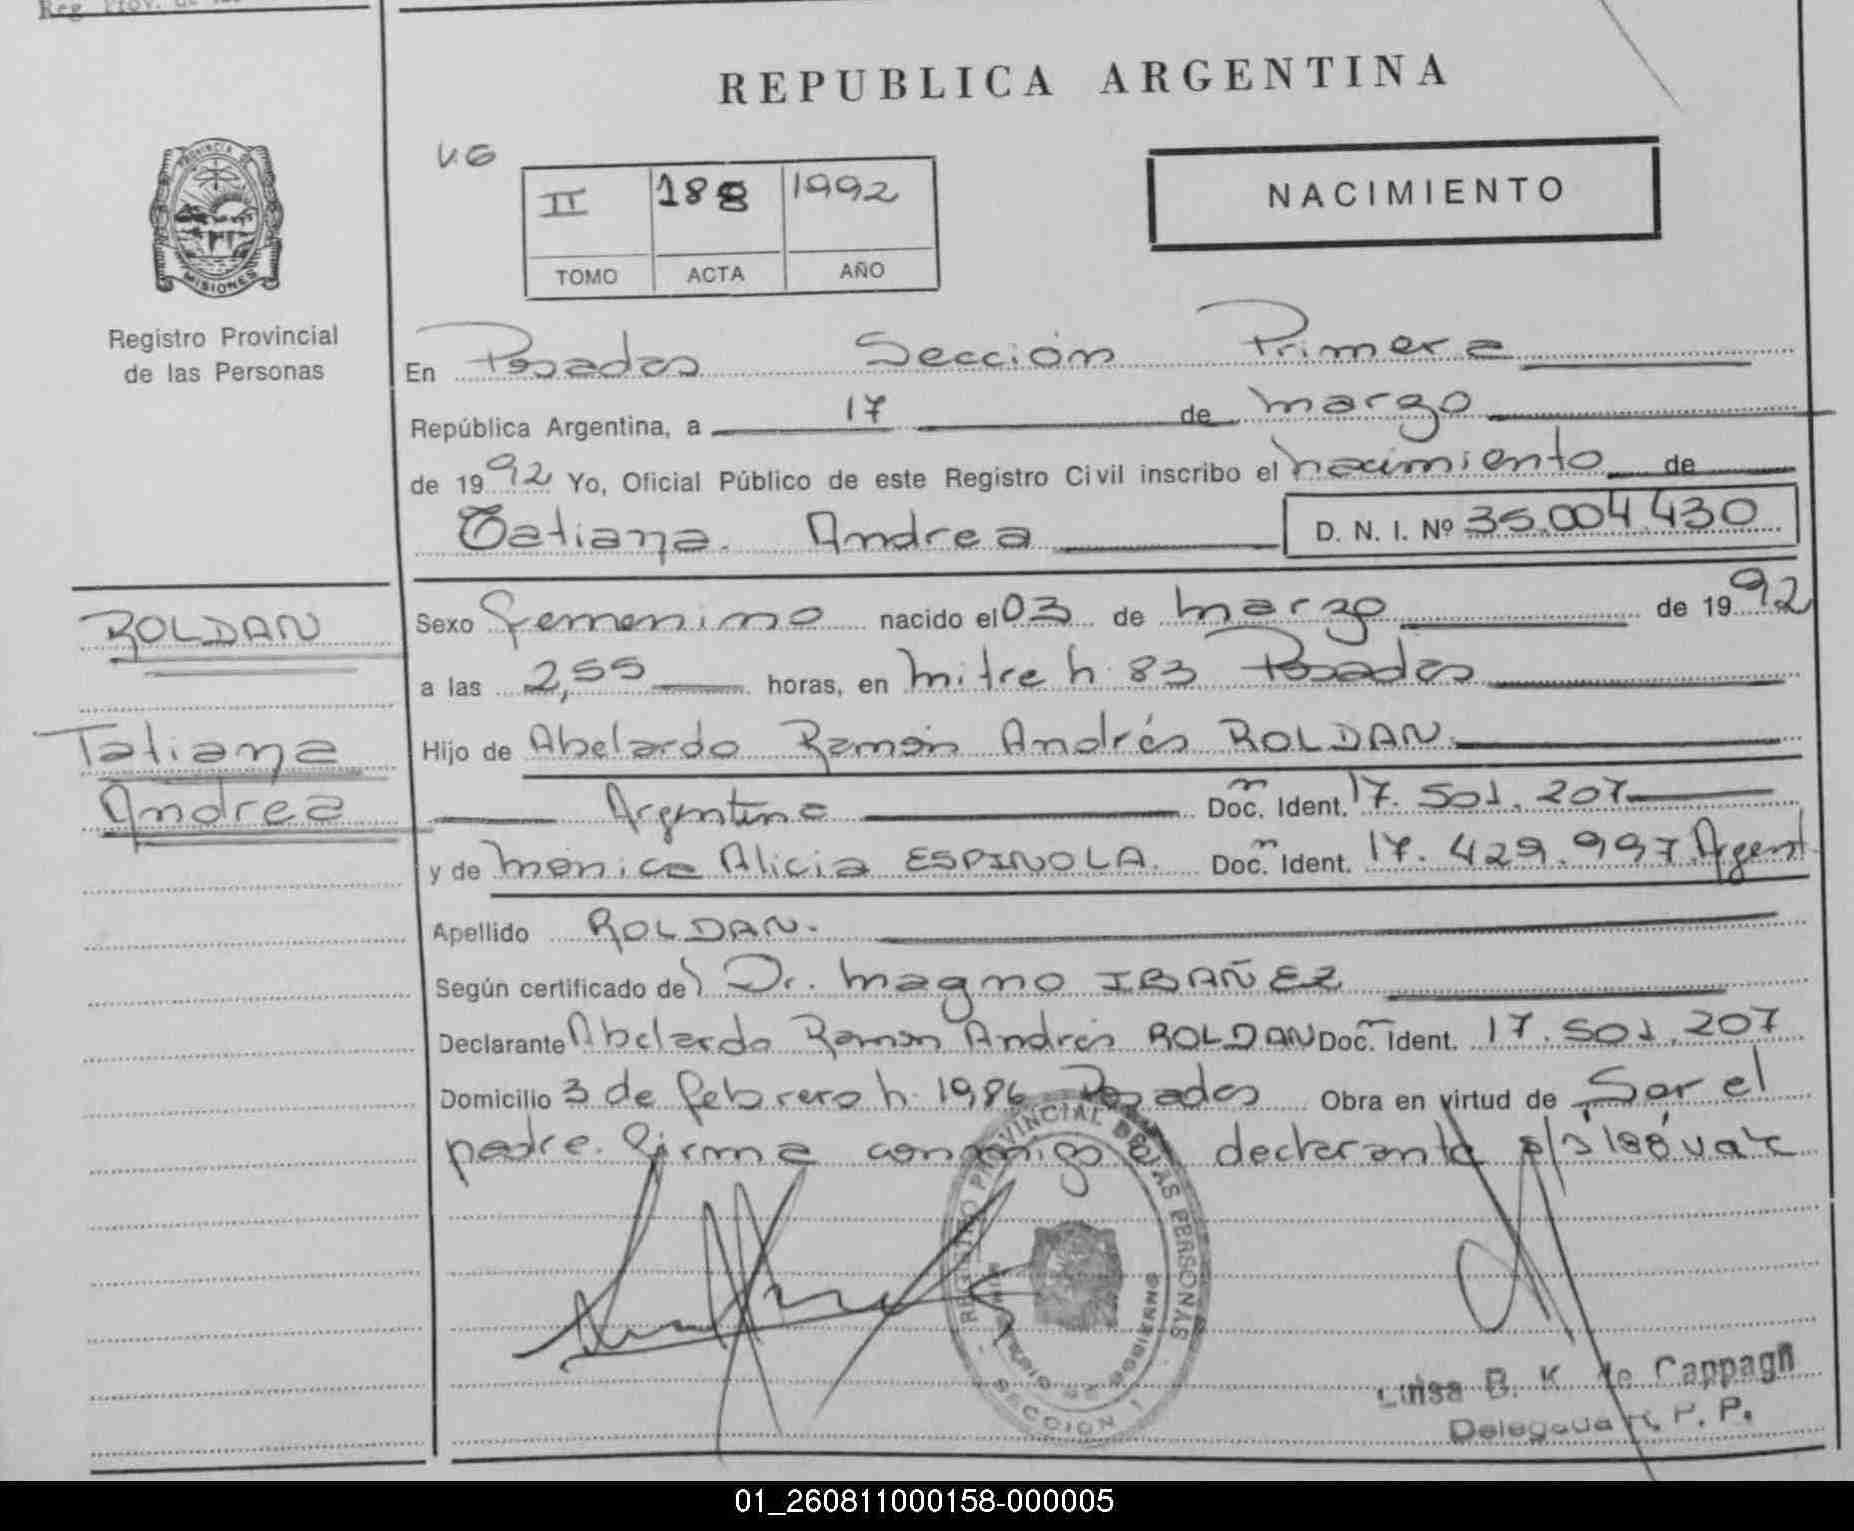 Reg. Prov. de las
REPUBLICA ARGENTINA
V.G
II 188 1992
TOMO ACTA AÑO
NACIMIENTO
PROVINCIA DE
MISIONES
Registro Provincial
de las Personas
En Posadas Sección Primera
República Argentina, a 17 de marzo
de 1992 Yo, Oficial Público de este Registro Civil inscribo el nacimiento de
Tatiana Andrea D. N. I. Nº 35.004.430
ROLDAN
Tatiana
Andrea
Sexo femenino nacido el 03 de marzo de 1992
a las 2,55 horas, en mitre h. 83 Posadas
Hijo de Abelardo Ramón Andrés ROLDAN
Argentina Doc. Ident. 17.501.207
y de mónica Alicia ESPINOLA. Doc. Ident. 17.429.997 Argent
Apellido ROLDAN.
Según certificado del Dr. magno IBAÑEZ
Declarante Abelardo Ramon Andrés ROLDAN Doc. Ident. 17.501.207
Domicilio 3 de febrero h. 1986 Posadas Obra en virtud de Ser el
padre. firma conmigo el declarante s/s 188 vale
REGISTRO PROVINCIAL DE LAS PERSONAS
MINISTERIO DE GOBIERNO
SECCION 1
Luisa B. K. de Cappagli
Delegada R. P. P.
01_260811000158-000005